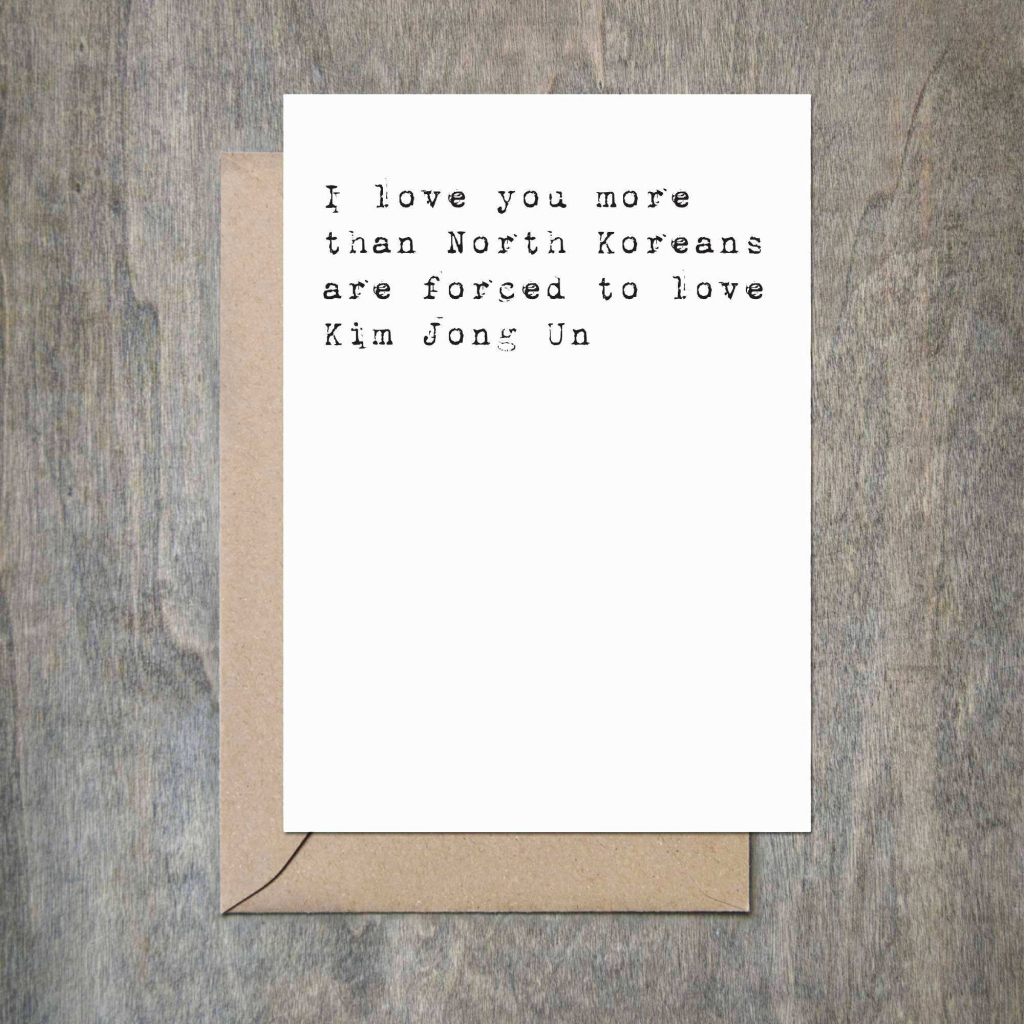 I love you more
than North Koreans
are forced to love
Kim Jong Un